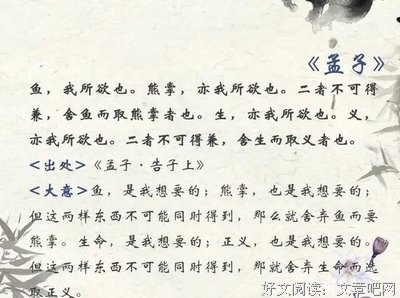 《孟子》
鱼，我所欲也。熊掌，亦我所欲也。二者不可得
兼，舍鱼而取熊掌者也。生，亦我所欲也。义，
亦我所欲也。二者不可得兼，舍生而取义者也。
<出处>《孟子·告子上》
<大意>鱼，是我想要的；熊掌，也是我想要的；
但这两样东西不可能同时得到，那么就舍弃鱼而要
熊掌。生命，是我想要的；正义，也是我想要的。
但这两样东西不可能同时得到，那么就舍弃生命而选
取正义。
好文阅读：文章吧网